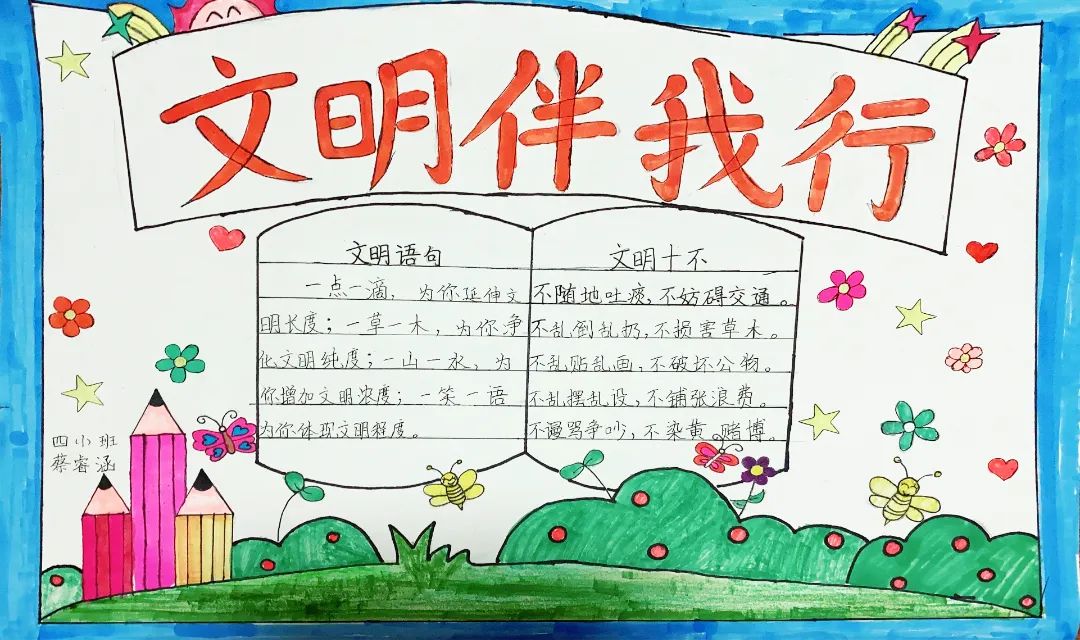 文明伴我行
文明语句
一点一滴，为你延伸文
明长度；一草一木，为你净
化文明纯度；一山一水，为
你增加文明浓度；一笑一语
为你体现文明程度。
文明十不
不随地吐痰，不妨碍交通。
不乱倒乱扔，不损害草木。
不乱贴乱画，不破坏公物。
不乱摆乱设，不铺张浪费。
不谩骂争吵，不染黄 赌博。
四小班
蔡睿涵